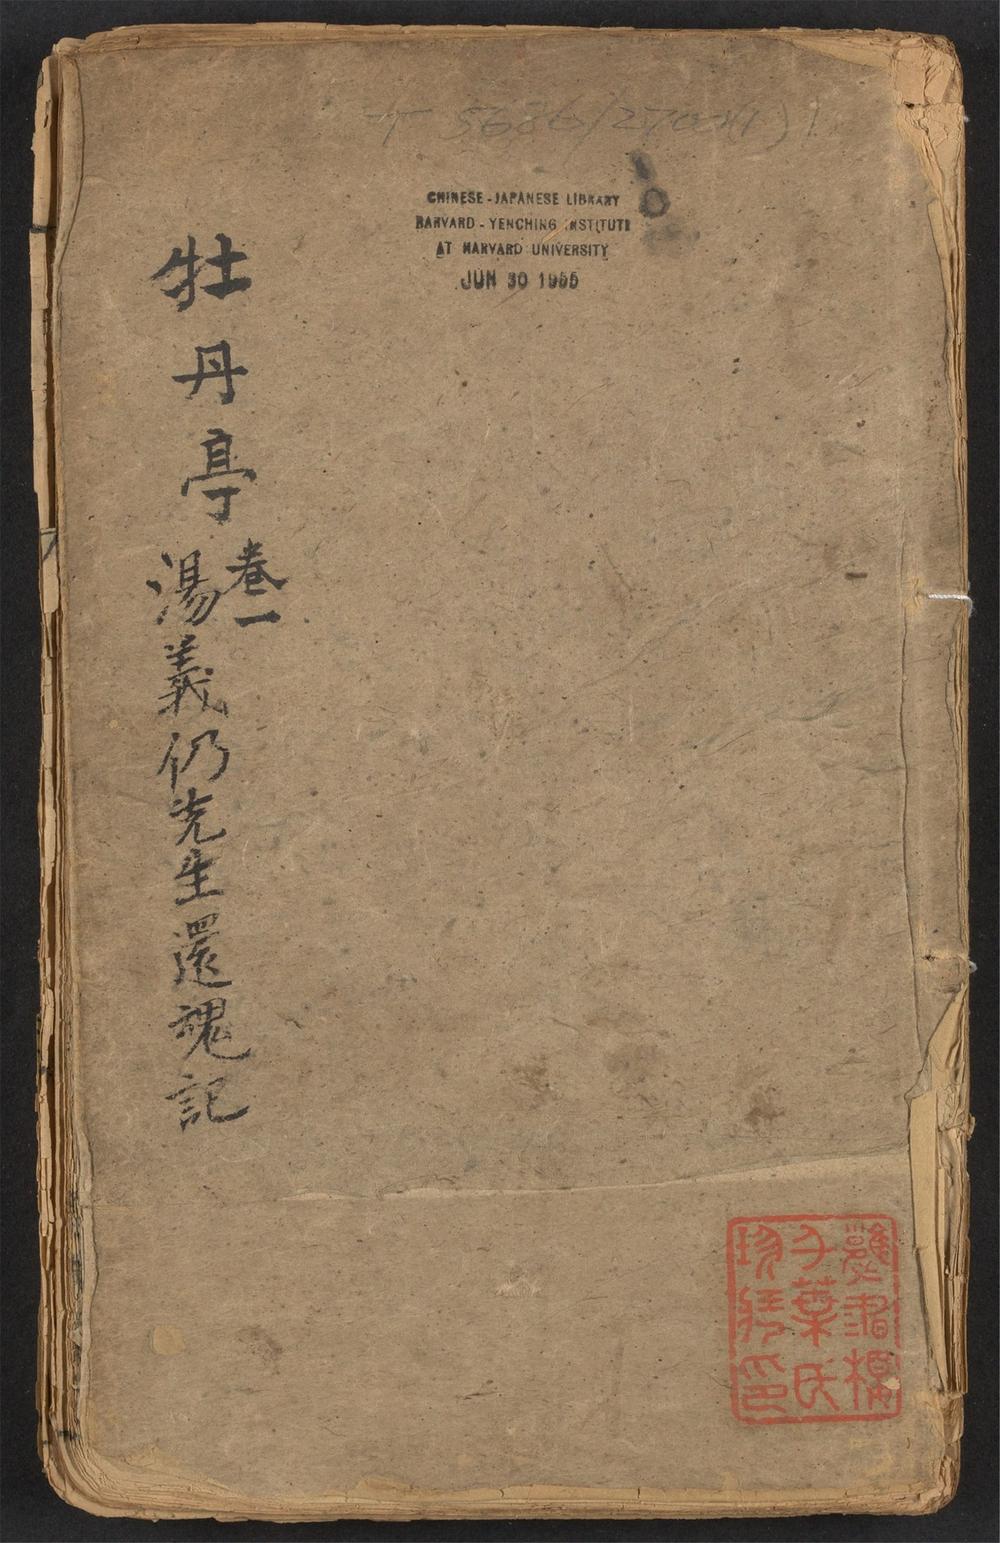 T 5686/2702(1)
CHINESE-JAPANESE LIBRARY
HARVARD-YENCHING INSTITUTE
AT HARVARD UNIVERSITY
JUN 30 1955
牡丹亭
卷一
湯義仍先生還魂記
葉氏
印